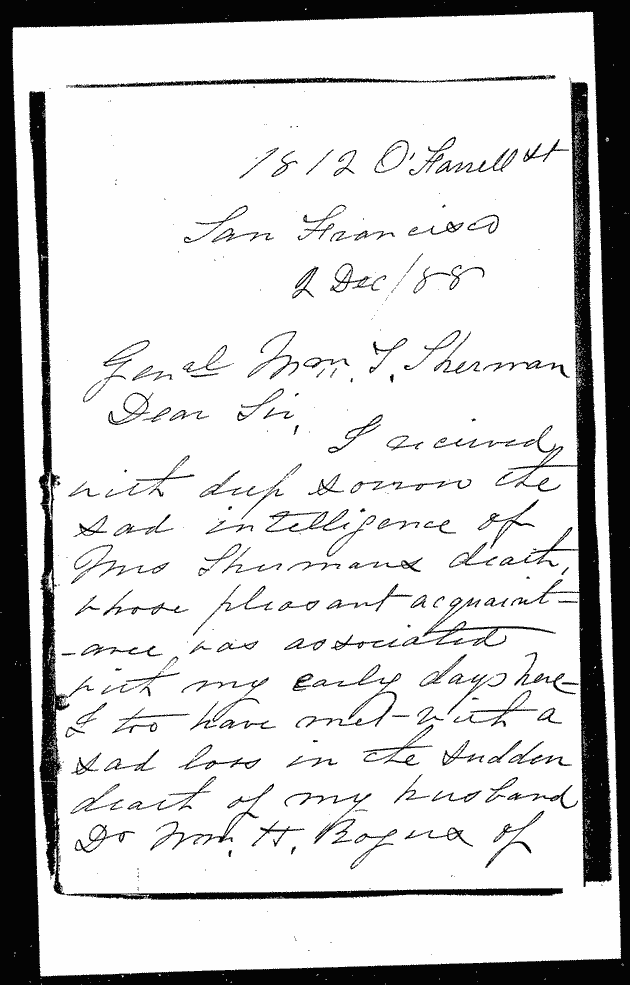 1812 O'Farrell St
San Francisco
2 Dec/88
Genal Wm. T. Sherman
Dear Sir,
I received
with deep sorrow the
sad intelligence of
Mrs Shermans death,
whose pleasant acquaint-
-ance was associated
with my early days here-
I too have met with a
sad loss in the sudden
death of my husband
Dr Wm. H. Rogers of